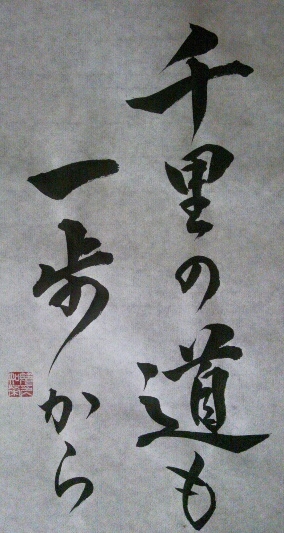 千里の道も
一歩から